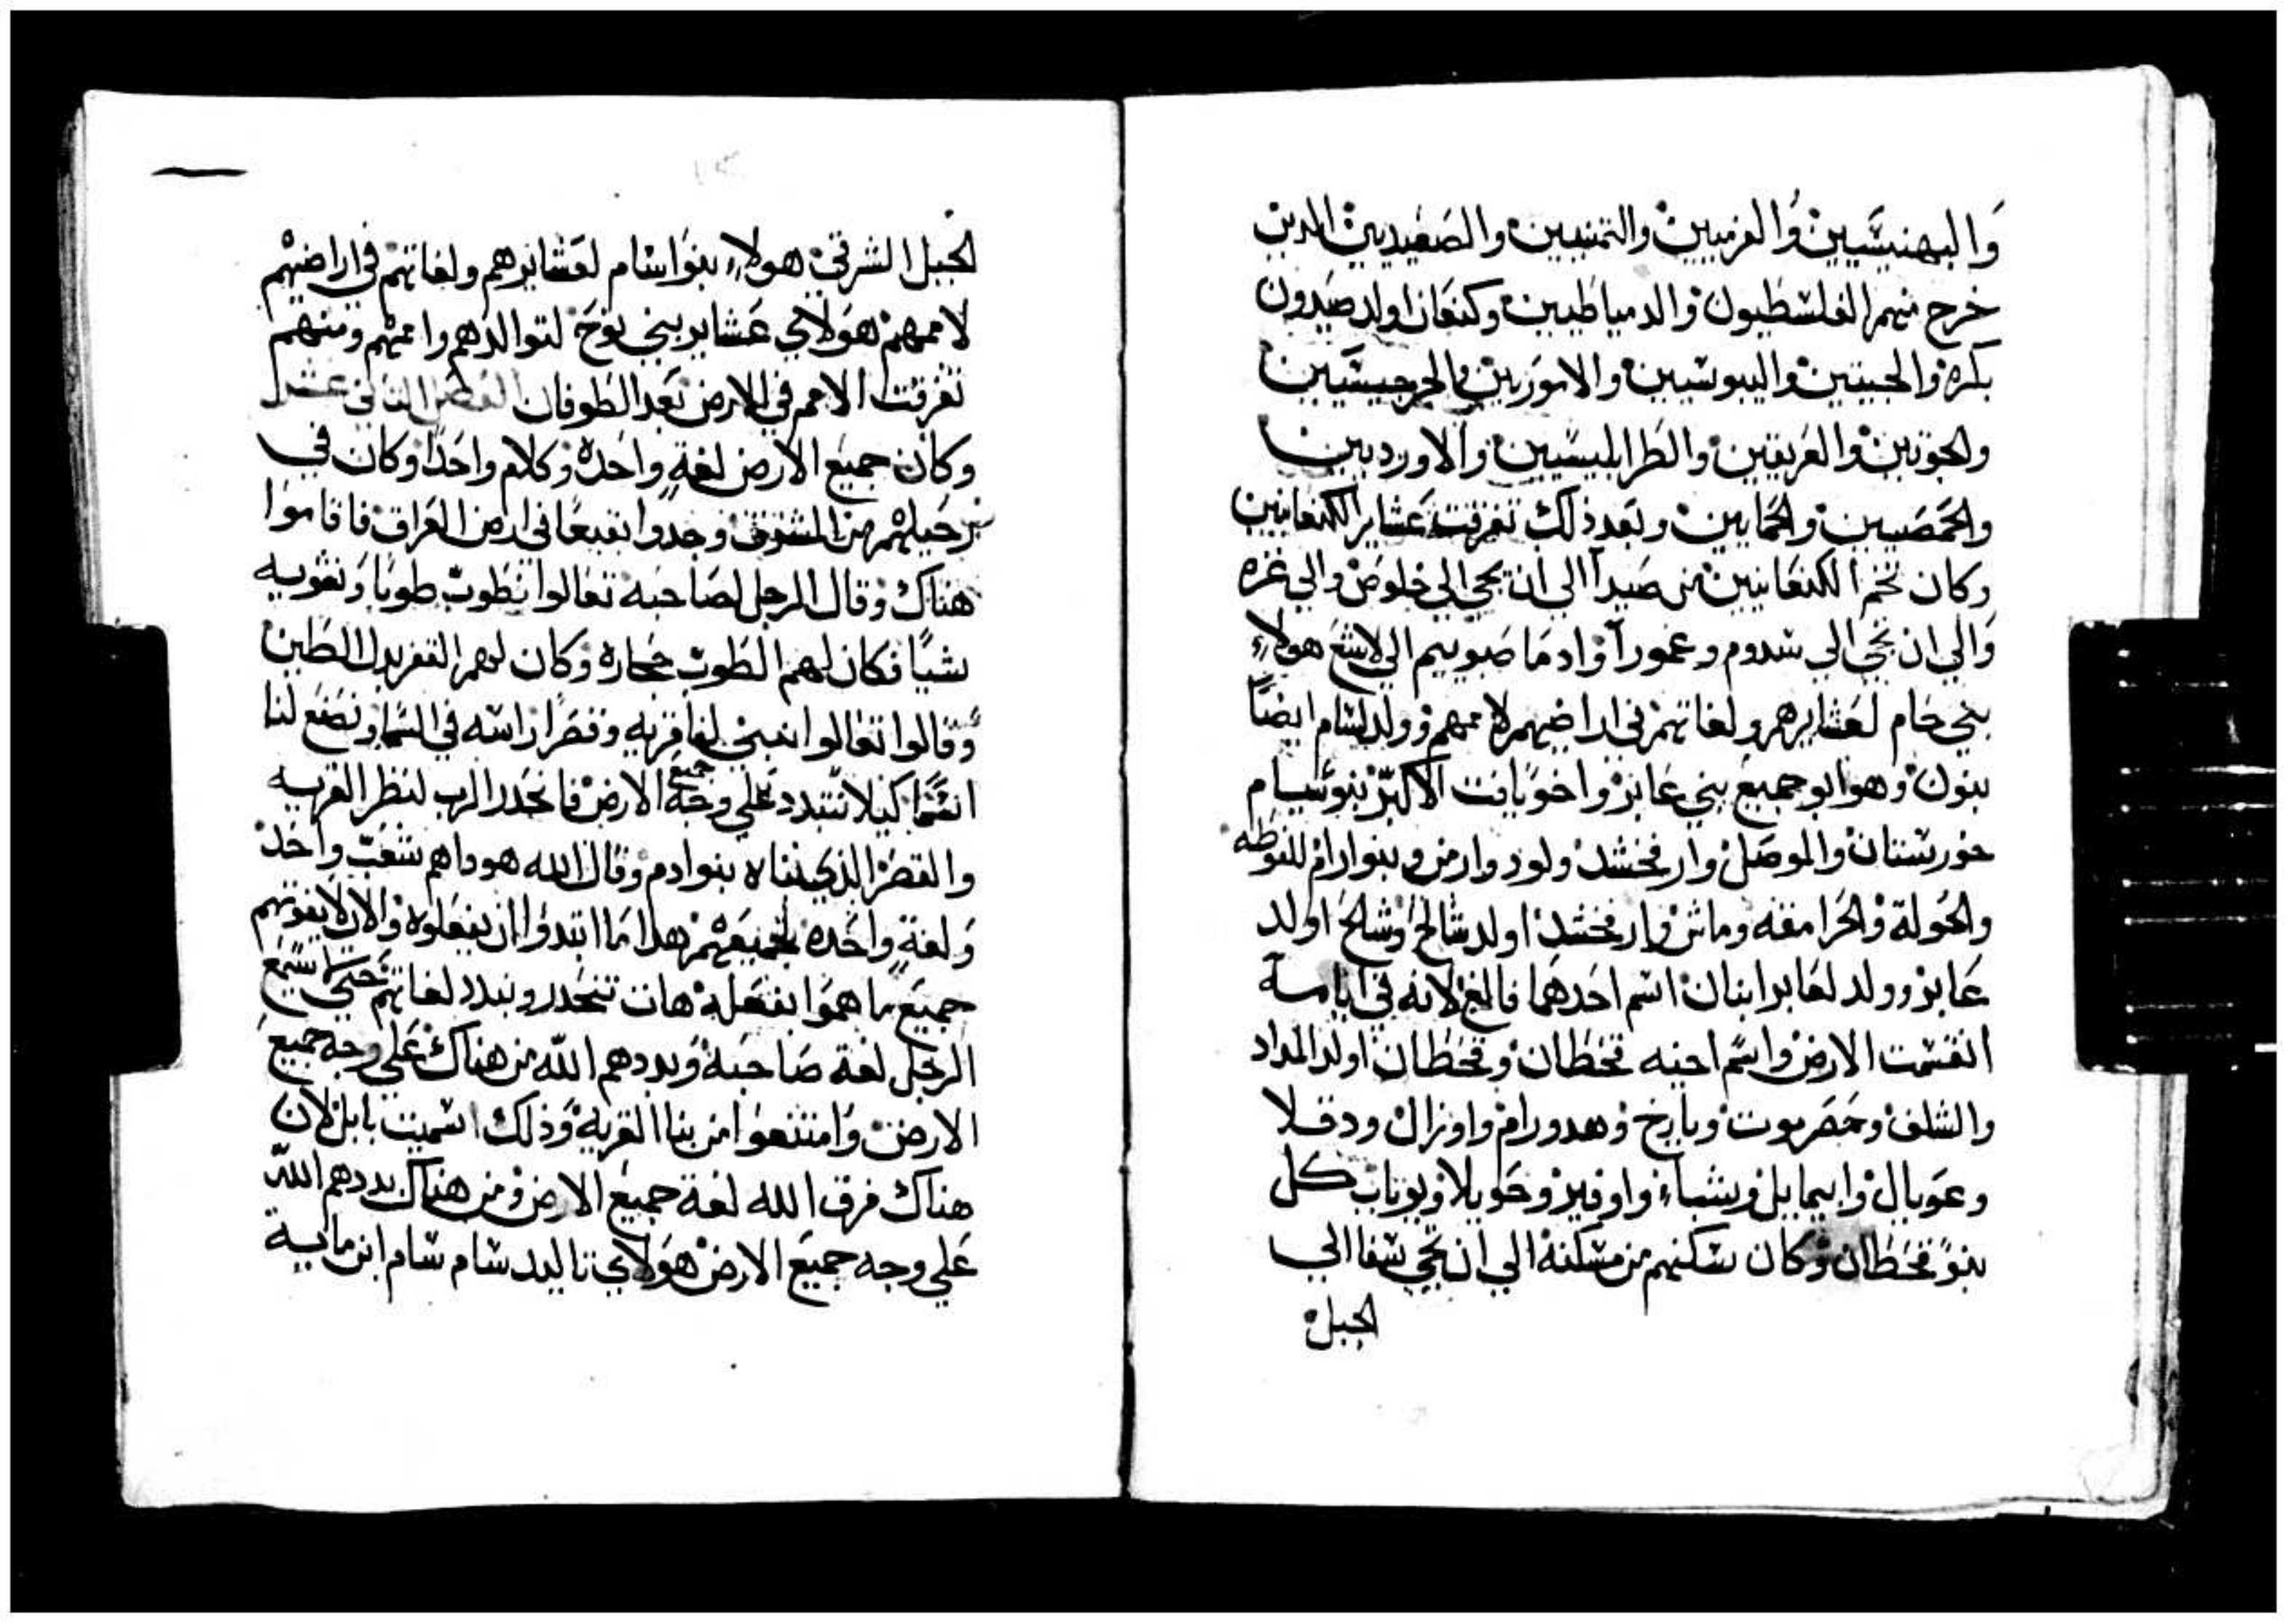 والبهنيسيين والفرميين والتمنيين والصعيديين الدين
خرج منهم الفلسطيون والدمياطيين وكنعان اولد صيدون
بكره والحيتين واليبوسيين والاموريين والجرجيسيين
والحويين والعريقيين والطرابلسيين والاورديين
والحمصيين والحمايين وبعد ذلك تفرقت عشاير الكنعانيين
وكان تخم الكنعانيين من صيدا الي ان يجي الي خلوص والي غزه
والي ان يجي الي سدوم وعمورا وادما صبوييم الي لاشع هولاء
بني حام لعشايرهم ولغاتهم في اراضيهم لاممهم وولد لسام ايضا
بنون وهو ابو جميع بني عابر واخو يافت الاكبر بنو سام
خورستان والموصل وارفخشد ولود وارمن وبنو ارام الغوطه
والحولة والحرامقه وماش وارفخشد اولد شالح وشالح اولد
عابر وولد لعابر ابنان اسم احدهما فالغ لانه في ايامه
انقسمت الارض واسم اخيه قحطان وقحطان اولد المداد
والشلف وحضرموت ويارخ وهدورام واوزال ودقلا
وعوبال وابيمايل وشباء واوفير وحويلا ويوباب كل
بنو قحطان وكان سكنهم من مسكنة الي ان يجي سفا الي
الجبل
الجبل الشرقي هولاء بنوا سام لعشايرهم ولغاتهم في اراضيهم
لاممهم هولاي عشاير بني نوح لتوالدهم واممهم ومنهم
تفرقت الامم في الارض بعد الطوفان الفصل الثاني عشر
وكان جميع الارض لغة واحده وكلام واحدا وكان في
رحيلهم من المشرق وجدوا بقيعا في ارض العراق فاقاموا
هناك وقال الرجل لصاحبه تعالوا نطوب طوبا ونشويه
شيا فكان لهم الطوب حجاره وكان لهم القفر بدل الطين
وقالوا تعالوا نبني لنا قريه وقصرا راسه في السما ونصنع لنا
اسما كيلا نتبدد علي وجه جميع الارض فانحدر الرب لينظر القريه
والقصر الذي بناه بنوا ادم وقال الله هودا هم شعب واحد
ولغة واحده لجميعهم هدا ما ابتدوا ان يفعلوه والان لا يفوتهم
جميع ما هموا بفعله هات ننحدر ونبدد لغاتهم حتي لا يسمع
الرجل لغة صاحبه وبددهم الله من هناك علي وجه جميع
الارض وامتنعوا من بنا القريه وذلك اسميت بابل لان
هناك فرق الله لغة جميع الارض ومن هناك بددهم الله
علي وجه جميع الارض هولاي تاليد سام سام ابن ماية